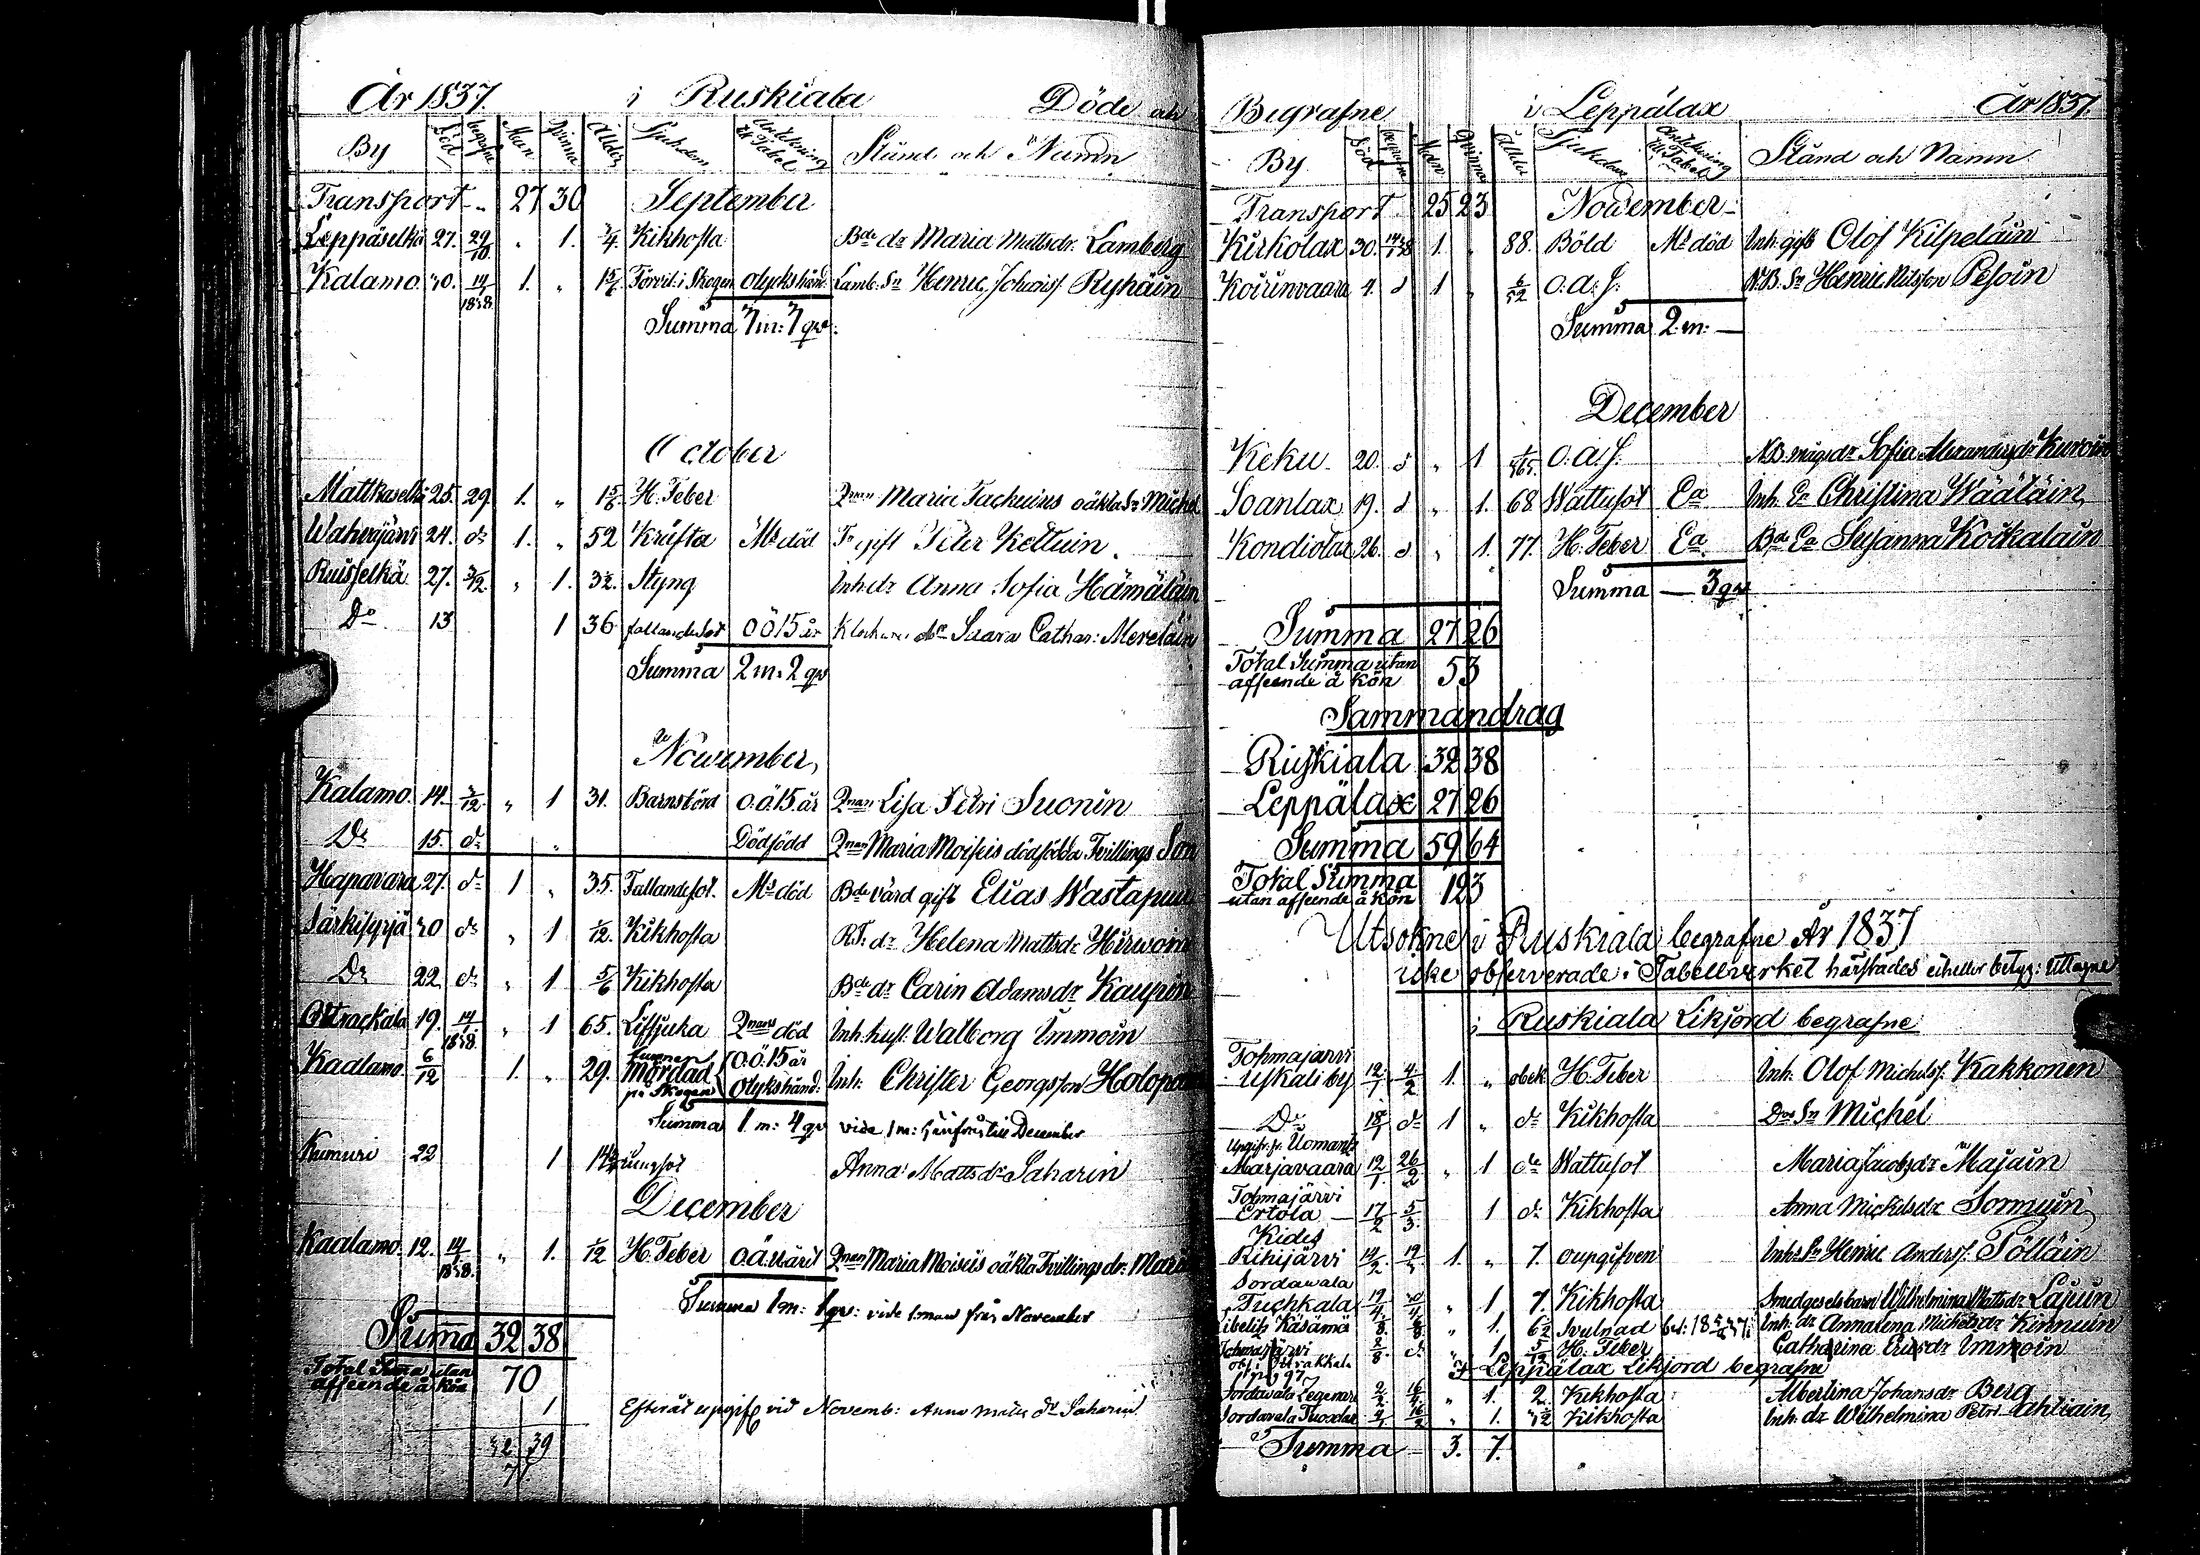 År 1837. i Ruskiala Döde och
By Död begrafne Man Qvinna Ålder Sjukdom Anteckning till Tabel Stånd och Namn
Transport 27 30 September
Leppäselkä 27. 29/10. " 1. 3/4 Kikhosta Bde dr Maria Mattsdr Lamberg
Kalamo 30. 14/1 1838. 1. " Förvil. i Skogen Olyckshänd. Lamb. Sn Henric Johansf. Ryhäin
Summa 7 m: 7 qv:
October
Mattkaselkä 25. 29. 1. " H. Feber Qnan Maria Tackuins oäkta Sn Michel
Wahvajärvi 24. do 1. " 52 Kräfta Ms död Tr gift Peter Kettuin.
Ruisselkä 27. 3/12. " 1. 3½. Styng Inh. dr Anna Sofia Hämäläin
Do 13 1 36 fallandesot O Ö 15 år Klockare dr Saara Cathar: Mereläin
Summa 2 m: 2 qv
November
Kalamo. 14. 3/12. " 1 31. Barnsbörd O. Ö. 15 år Qnan Lisa Petri Suonin
Do 15. do " Dödfödd Qnan Maria Moiseis dödfödda Tvillings Son
Hapavara 27. do 1 " 35. Fallandesot. Ms död Bde värd gift Elias Wastapuu
Särkisyrjä 30 do " 1 1/12. Kikhosta R.T. dr Helena Mattsdr Hirwoin
Do 22 do " 1 5/6 Kikhosta Bde dr Carin Adamsdr Kaupin
Ottrackala 19. 14/1 1838. " 1 65. Liffsjuka Qnans död Inh. hust. Walborg Immoin
Kadlamo 6/12 1. " 29. funnen mördad på Skogen O. Ö 15 år Olykshänd: Inh: Christer Georgsson Holopain
Summa 1 m: 4 qv vide 1 m: hänförus till December
Kumuri 22 1 Lungsot Anna Mattsdr Saharin
December
Kaalamo. 12. 14/1 1838. " 1. 1/12 H. Feber Qnan Maria Moisiis oäkta Tvillings dr. Maria
Summa 1 m: 1 qv: vide 1 man från November
Summa 32 38
Total Suma utan afseende å kön 70
1 Efteråt uppgift vid Novemb: Anna Matts dr Saharin
32 39
71
Begrafne i Leppälax År 1837.
By. Död begrafne Man Qvinna Ålder Sjukdom Anteckning till Tabel Stånd och Namn
Transport 25 23 November
Kirkolax 30. 1. " 88. Böld Ms död Inh. gift Olof Kilpeläin
Koirinvaara 4. d 1 " 6/52 o. a. f. N. B. Sn Henric Nilsson Pesoin
Summa 2 m: —
December
Keku 20. d " 1 1/365. o. a. f. N.B. mågs dr Sofia Alexandersdr Kuroin
Soanlax 19. d " 1. 68 Wattusot Ea Inh. Ea Christina Wääläin
Kondiolax 26. d " 1. 77. H. Feber Ea Bde Ea Susanna Kotkalain
Summa — 3 qv
Summa 27 26
Total Summa utan afseende å kön 53
Sammandrag
Ruskiala 32 38
Leppälax 27 26
Summa 59 64
Total Summa utan afseende å kön 123
Utsokne i Ruskiala begrafne År 1837
icke observerade i Tabellverket härstädes
i Ruskiala Likjord begrafne
Tohmajarvi Uskali by 12/1 4/2 1. " obek H. Feber Inh. Olof Michelsf. Kakkonen
Do 18/1 do 1 " do Kikhosta Dos Sn Michel
Marjavaara 12/1 26/2 " 1 do Wattusot Maria Jacobsdr Majain
Tohmajärvi Ertola 17/2 5/3. 1 do Kikhosta Anna Mickelsdr Sormuin
Kides Rihijärvi 14/2 1. " 7. oupgifven Inh. Sn Henric Andersf. Pölläin
Sordawala Tuchkala 19/4. " 1 7. Kikhosta Smedgeselsbarn Wilhelmina Mattsdr Lapuin
Libelits Käsämä " 1. 6½ Svulnad Inh. dr Annalena Michelsdr Kinnuin
Tohmajärvi 2/8 d. " 1 5/12 H. Feber Catharina Ericsdr Immoin
i Leppälax Likjord begrafne
Sordavala 2/2 16/2 " 1. 2 Kikhosta Albertina Johansdr Berg
Sordavala 2/2 16/2 " 1. Kikhosta Inh. dr Wilhelmina Petri Ahtiain
Summa 3. 7.